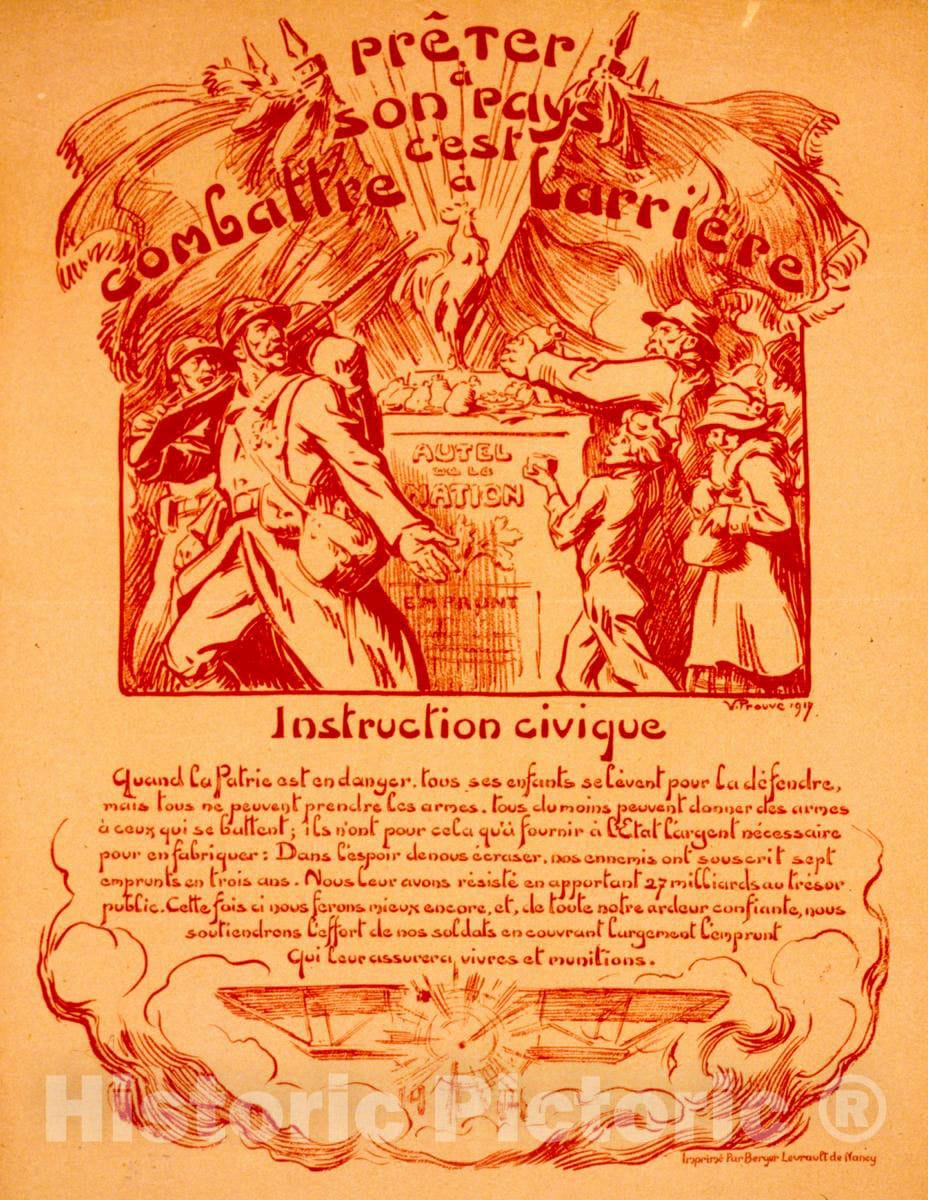 prêter
à
son pays
c'est
combattre à l'arrière
AUTEL
DE LA
NATION
EMPRUNT
V. Prouvé 1917
Instruction civique
Quand la Patrie est en danger, tous ses enfants se lèvent pour la défendre,
mais tous ne peuvent prendre les armes. tous du moins peuvent donner des armes
à ceux qui se battent; ils n'ont pour cela qu'à fournir à l'Etat l'argent nécessaire
pour en fabriquer: Dans l'espoir de nous écraser, nos ennemis ont souscrit sept
emprunts en trois ans. Nous leur avons résisté en apportant 27 milliards au trésor
public. Cette fois ci nous ferons mieux encore, et, de toute notre ardeur confiante, nous
soutiendrons l'effort de nos soldats en couvrant largement l'emprunt
qui leur assurera vivres et munitions.
Historic Pictoric ®
Imprimé Par Berger Levrault de Nancy